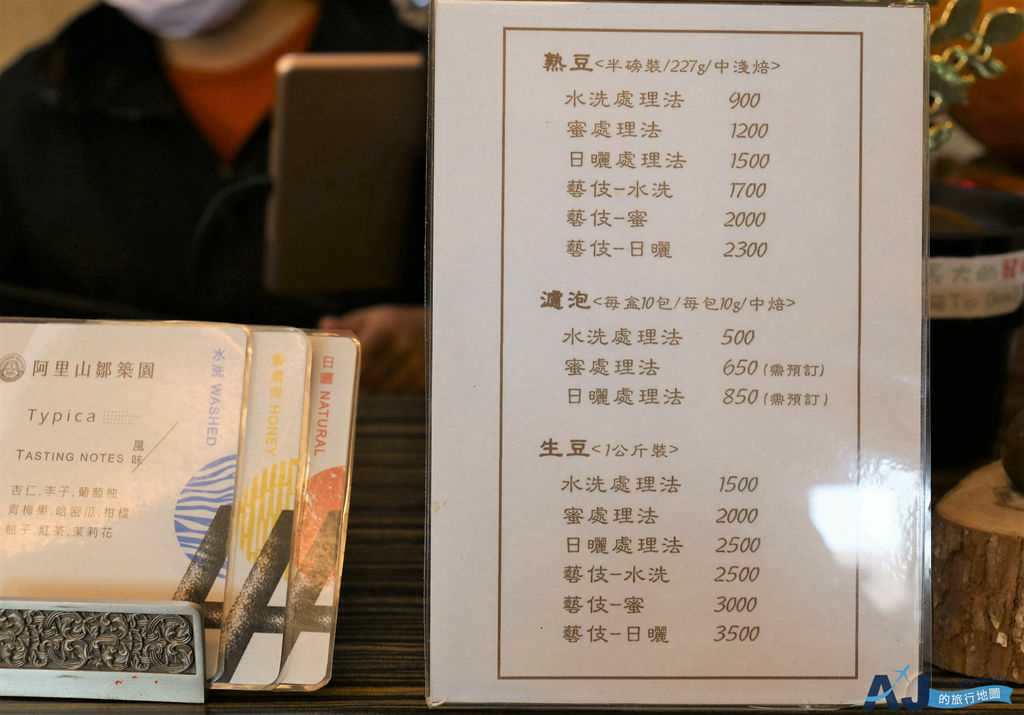 熟豆<半磅裝/227g/中淺焙>
水洗處理法 900
蜜處理法 1200
日曬處理法 1500
藝伎-水洗 1700
藝伎-蜜 2000
藝伎-日曬 2300
濾泡<每盒10包/每包10g/中焙>
水洗處理法 500
蜜處理法 650(需預訂)
日曬處理法 850(需預訂)
生豆<1公斤裝>
水洗處理法 1500
蜜處理法 2000
日曬處理法 2500
藝伎-水洗 2500
藝伎-蜜 3000
藝伎-日曬 3500
阿里山鄒築園
Typica
TASTING NOTES 風味
杏仁.李子.葡萄柚
青梅果.哈密瓜.柑橘
柚子.紅茶.茉莉花
水洗 WASHED
蜜處理 HONEY
日曬 NATURAL
Tip
AJ
的旅行地圖